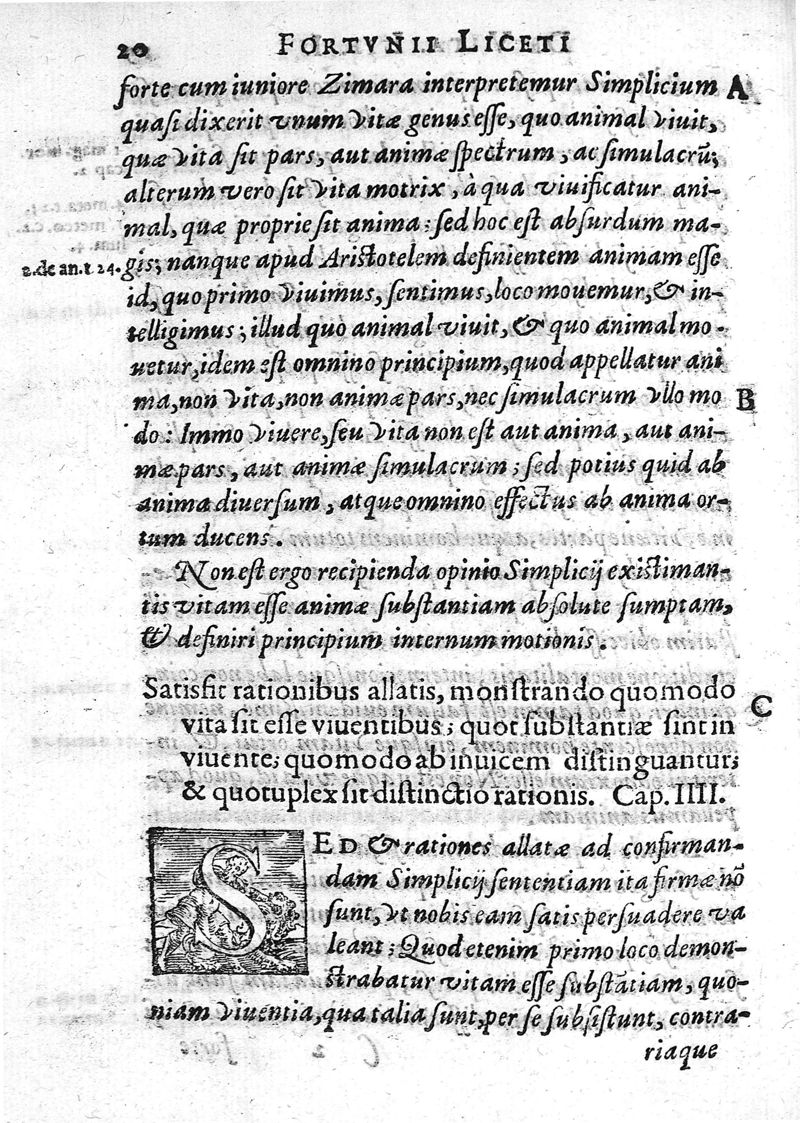 20 FORTVNII LICETI
forte cum iuniore Zimara interpretemur Simplicium A
quasi dixerit vnum vitæ genus esse, quo animal viuit,
quæ vita sit pars, aut animæ spectrum, ac simulacrũ;
alterum vero sit vita motrix, à qua viuificatur ani-
mal, quæ proprie sit anima: sed hoc est absurdum ma-
2.de an.t.24. gis; nanque apud Aristotelem definientem animam esse
id, quo primo viuimus, sentimus, loco mouemur, & in-
telligimus; illud quo animal viuit, & quo animal mo-
uetur, idem est omnino principium, quod appellatur ani
ma, non vita, non animæ pars, nec simulacrum vllo mo B
do: Immo viuere, seu vita non est aut anima, aut ani-
mæ pars, aut animæ simulacrum; sed potius quid ab
anima diuersum, atque omnino effectus ab anima or-
tum ducens.
Non est ergo recipienda opinio Simplicij existiman-
tis vitam esse animæ substantiam absolute sumptam,
& definiri principium internum motionis.
Satisfit rationibus allatis, monstrando quomodo C
vita sit esse viuentibus; quot substantiæ sint in
viuente; quomodo ab inuicem distinguantur;
& quotuplex sit distinctio rationis. Cap. IIII.
SED & rationes allatæ ad confirman-
dam Simplicij sententiam ita firmæ nõ
sunt, vt nobis eam satis persuadere va
leant; Quod etenim primo loco demon-
strabatur vitam esse substãtiam, quo-
niam viuentia, qua talia sunt, per se subsistunt, contra-
riaque